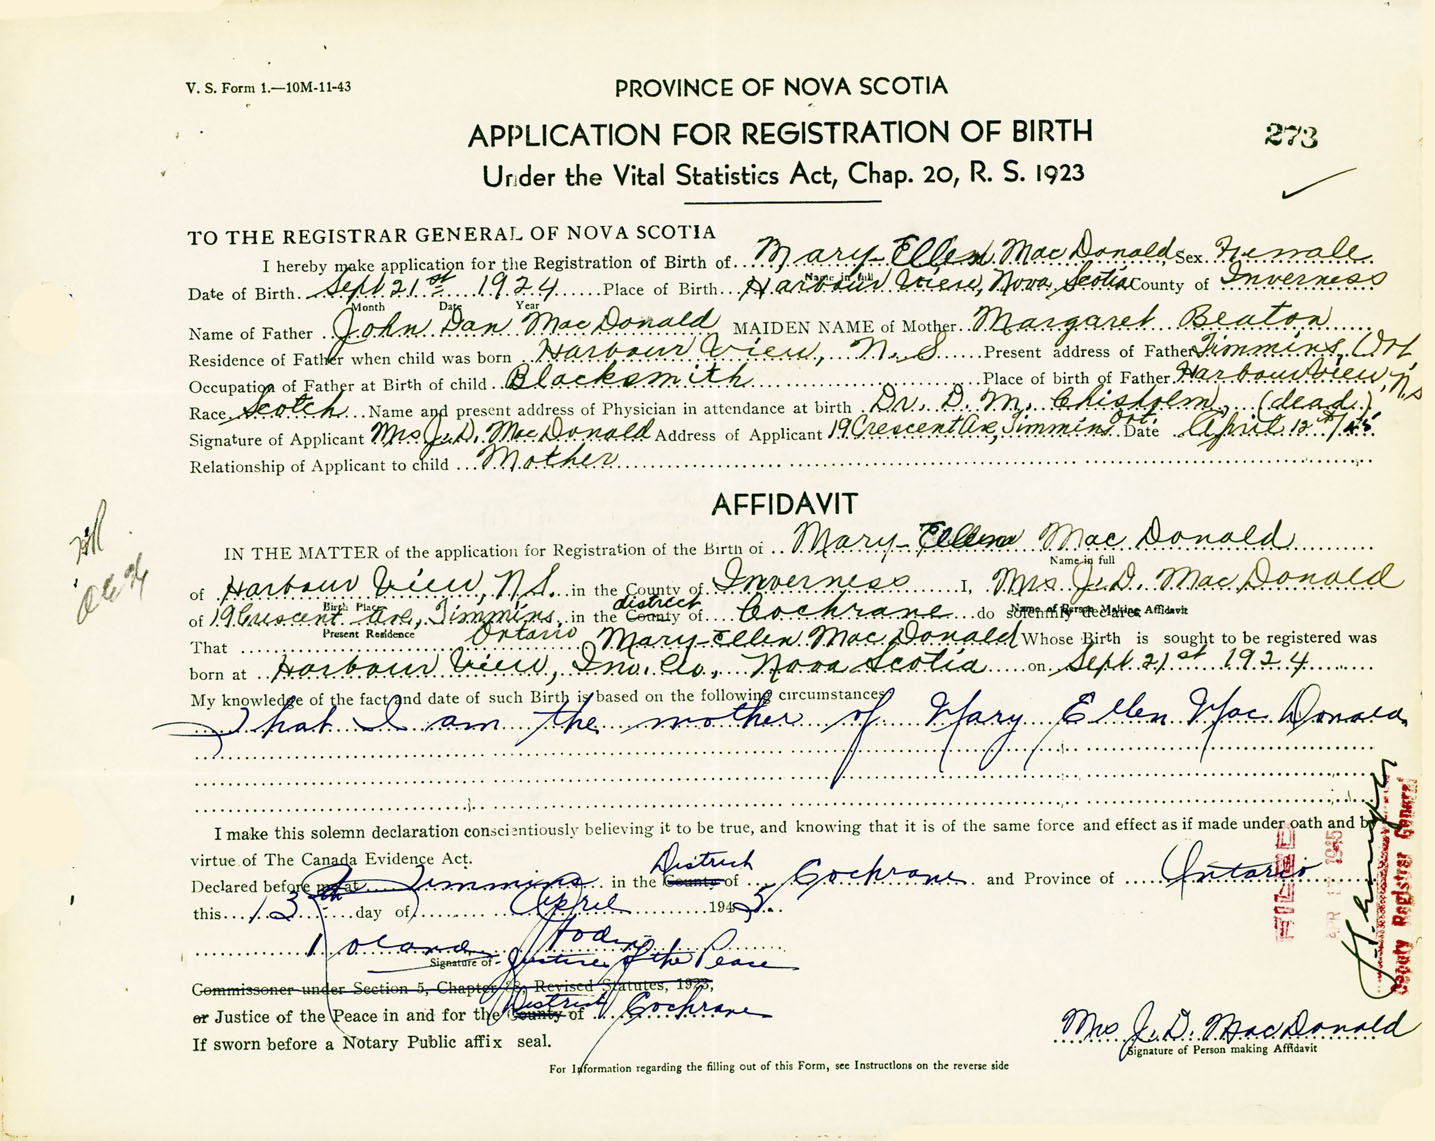 V. S. Form 1.—10M-11-43
PROVINCE OF NOVA SCOTIA
APPLICATION FOR REGISTRATION OF BIRTH
273
Under the Vital Statistics Act, Chap. 20, R. S. 1923
TO THE REGISTRAR GENERAL OF NOVA SCOTIA
I hereby make application for the Registration of Birth of Mary-Ellen MacDonald Sex Female
Name in full
Date of Birth Sept 21st 1924 Place of Birth Harbour View, Nova Scotia County of Inverness
Month Date Year
Name of Father John Dan MacDonald MAIDEN NAME of Mother Margaret Beaton
Residence of Father when child was born Harbour View, N.S. Present address of Father Timmins, Ont.
Occupation of Father at Birth of child Blacksmith Place of birth of Father Harbour View, N.S
Race Scotch Name and present address of Physician in attendance at birth Dr. D. M. Chisholm, (dead.)
Signature of Applicant Mrs J. D. MacDonald Address of Applicant 19 Crescent Ave, Timmins Ont. Date April 12th/45
Relationship of Applicant to child Mother
AFFIDAVIT
IN THE MATTER of the application for Registration of the Birth of Mary-Ellen MacDonald
Name in full
of Harbour View, N.S. in the County of Inverness I, Mrs. J. D. MacDonald
Birth Place district Name of Person Making Affidavit
of 19 Crescent Ave, Timmins, in the County of Cochrane do solemnly declare:
Present Residence Ontario
That Mary-Ellen MacDonald Whose Birth is sought to be registered was
born at Harbour View, Inv. Co., Nova Scotia on Sept. 21st 1924
My knowledge of the fact and date of such Birth is based on the following circumstances
That I am the mother of Mary Ellen MacDonald
I make this solemn declaration conscientiously believing it to be true, and knowing that it is of the same force and effect as if made under oath and by
virtue of The Canada Evidence Act.
District
Declared before me at Timmins in the County of Cochrane and Province of Ontario
this 13th day of April 1945
Roland
Signature of Justice of the Peace
Commissoner under Section 5, Chapter Revised Statutes, 1923,
District
or Justice of the Peace in and for the County of Cochrane
If sworn before a Notary Public affix seal.
Mrs J. D. MacDonald
Signature of Person making Affidavit
For Information regarding the filling out of this Form, see Instructions on the reverse side
FILED
1945
Deputy Registrar General